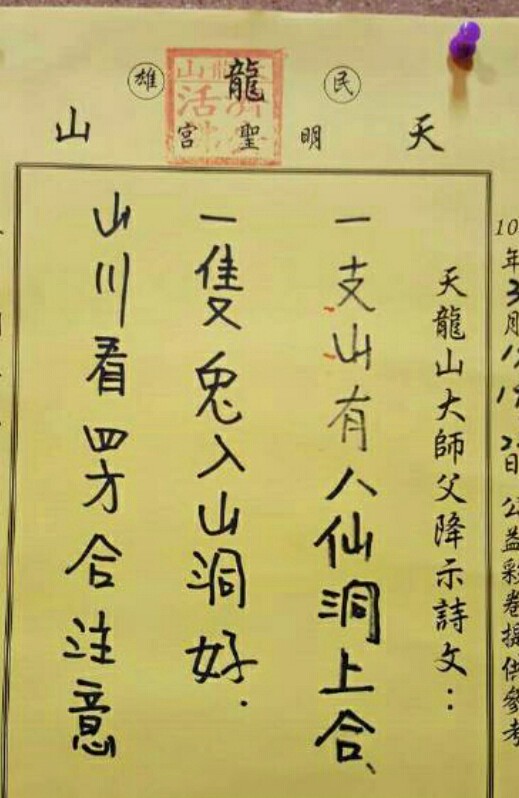 雄 龍 民
山 宮 聖 明 天
天龍山大師父降示詩文：
一支山有人仙洞上合、
一隻兔入山洞好．
山川看四方合注意
年3月
日 公益彩卷提供參考